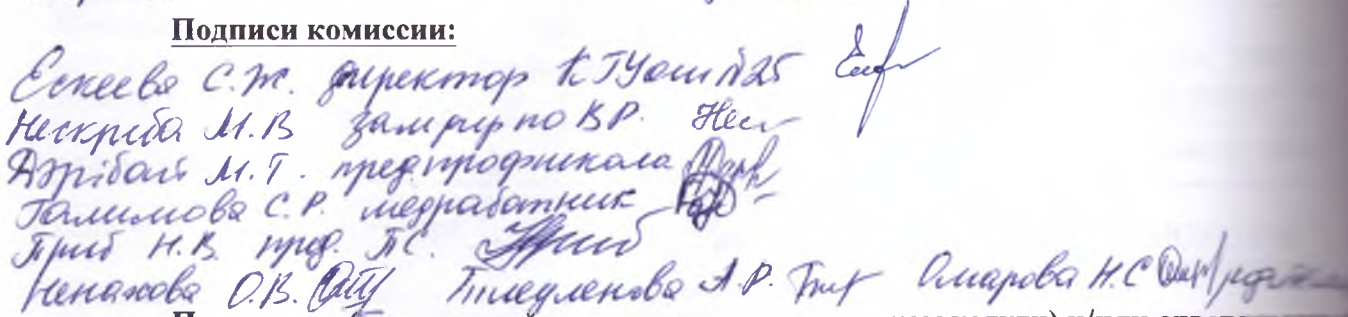 Подписи комиссии:
Ескеева С.Ж. директор КГУ ОШ №25
Нескриба М.В зам дир по ВР.
Дәрібай М.Т. пред профшкола
Галимова С.Р. медработник
Гриб Н.В. пред. ПС.
Ненахова О.В. Тлеуленова А.Р. Омарова Н.С